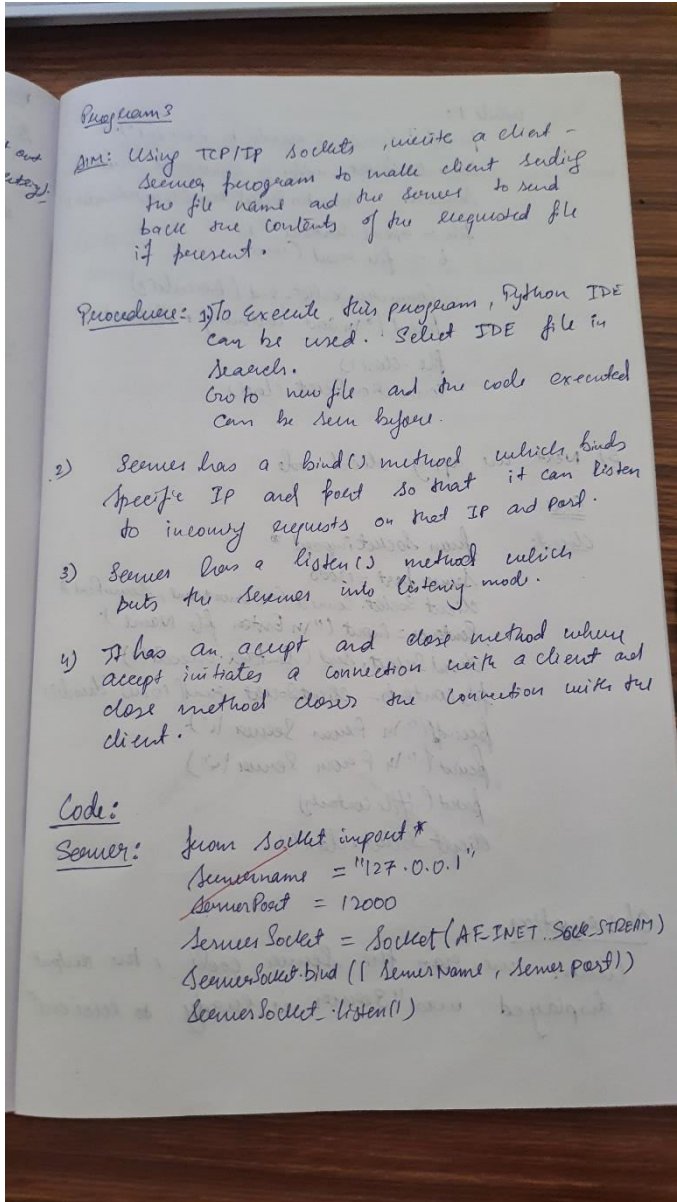 Program 3
AIM: Using TCP/IP sockets, write a client -
server program to make client sending
the file name and the server to send
back the contents of the requested file
if present.
Procedure: 1) To execute this program, Python IDE
can be used. Select IDE file in
search.
Go to new file and the code executed
can be seen before.
2) Server has a bind() method which binds
specific IP and port so that it can listen
to incoming requests on that IP and port.
3) Server has a listen() method which
puts the server into listening mode.
4) It has an accept and close method where
accept initiates a connection with a client and
close method closes the connection with the
client.
Code:
Server: from socket import *
Servername = "127.0.0.1"
ServerPort = 12000
Server Socket = Socket (AF_INET, Sock_STREAM)
ServerSocket.bind (( ServerName, Server port))
ServerSocket.listen(1)